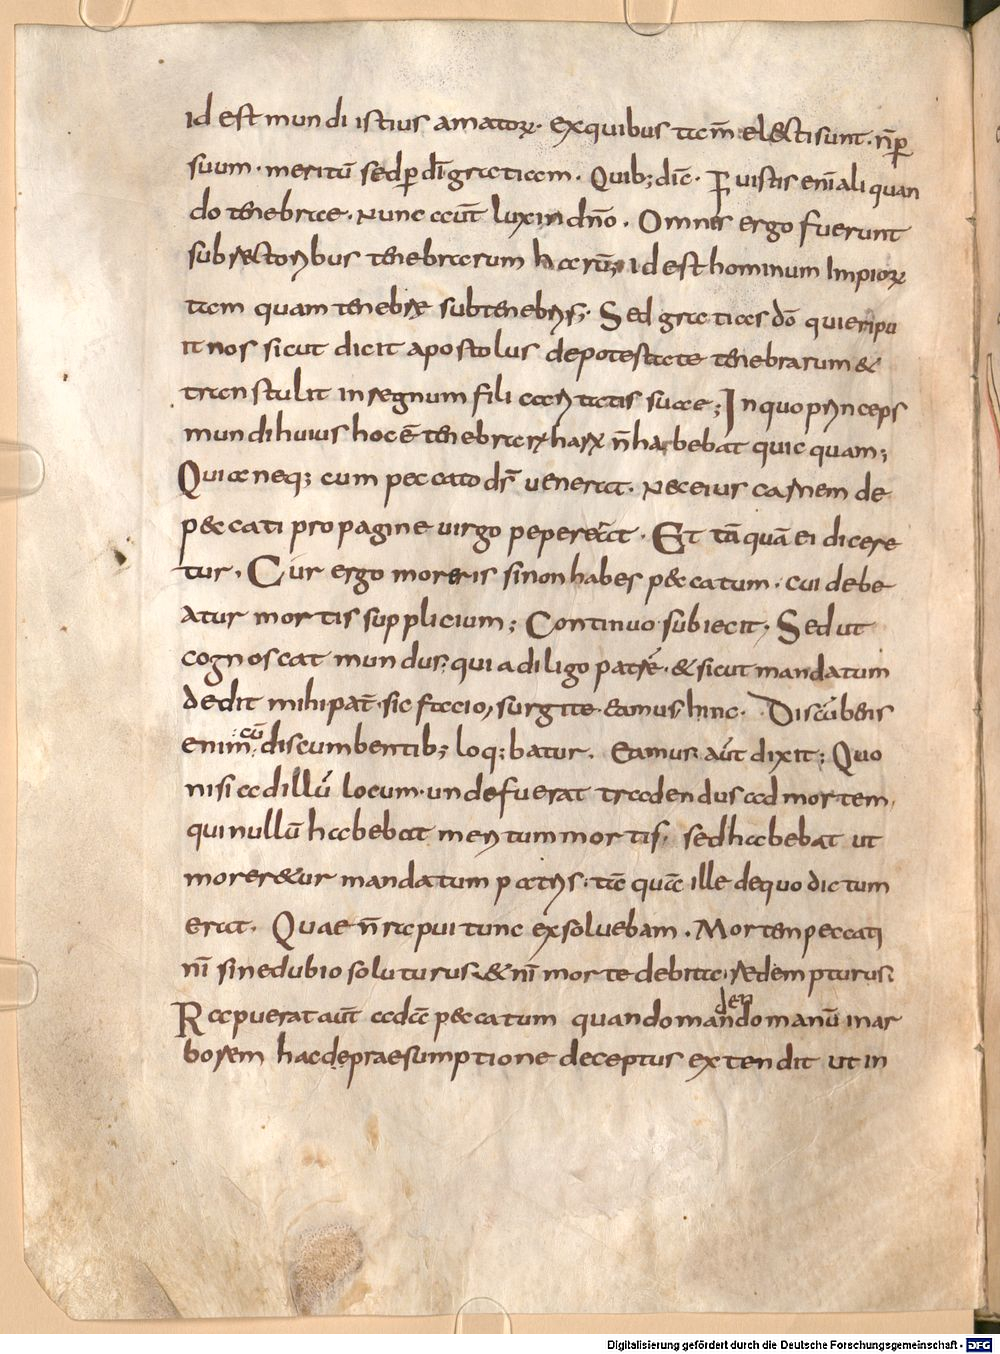 id est mundi istius amatorꝝ. ex quibus tam̄ electi sunt. n̄ ꝑ
suum. meritū sed ꝑ dī gratiam. Quib; dic̄. Fuistis enī aliquan
do tenebrae. nunc aut̄ lux in dn̄o. Omnes ergo fuerunt
sub rectoribus tenebrarum harū; id est hominum impiorꝝ
tam quam tenebrę sub tenebris; Sed gratias dō qui eripu
it nos sicut dicit apostolus de potestate tenebrarum &
transtulit in regnum fili caritatis suae; In quo princeps
mundi huius hoc ē tenebrarꝝ harꝝ n̄ habebat quicquam;
Quia neq; cum peccato dš venerat. Nec eius carnem de
peccati propagine virgo pepererat. Et tāquā ei dicere
tur. Cur ergo moreris si non habes peccatum. cui debe
atur mortis supplicium; Continuo subiecit. Sed ut
cognoscat mundus qui a diligo patrē. & sicut mandatum
dedit mihi pat̄. sic facio, surgite eamus hinc. Discūbens
enim cū discumbentib; loq;batur. Eamus aūt dixit; Quo
nisi ad illū locum. unde fuerat tradendus ad mortem,
qui nullū habebat meritum mortis. sed habebat ut
moreretur mandatum patris. tā quā ille de quo dictum
erat. Quae n̄ rapui tunc exsoluebam. Mortem peccati
nī sine dubio soluturus. & nī morte debita. redempturus.
Rapuerat aūt adā peccatum quando mandendo manū in ar
borem hac de praesumptione deceptus extendit ut in
Digitalisierung gefördert durch die Deutsche Forschungsgemeinschaft - DFG